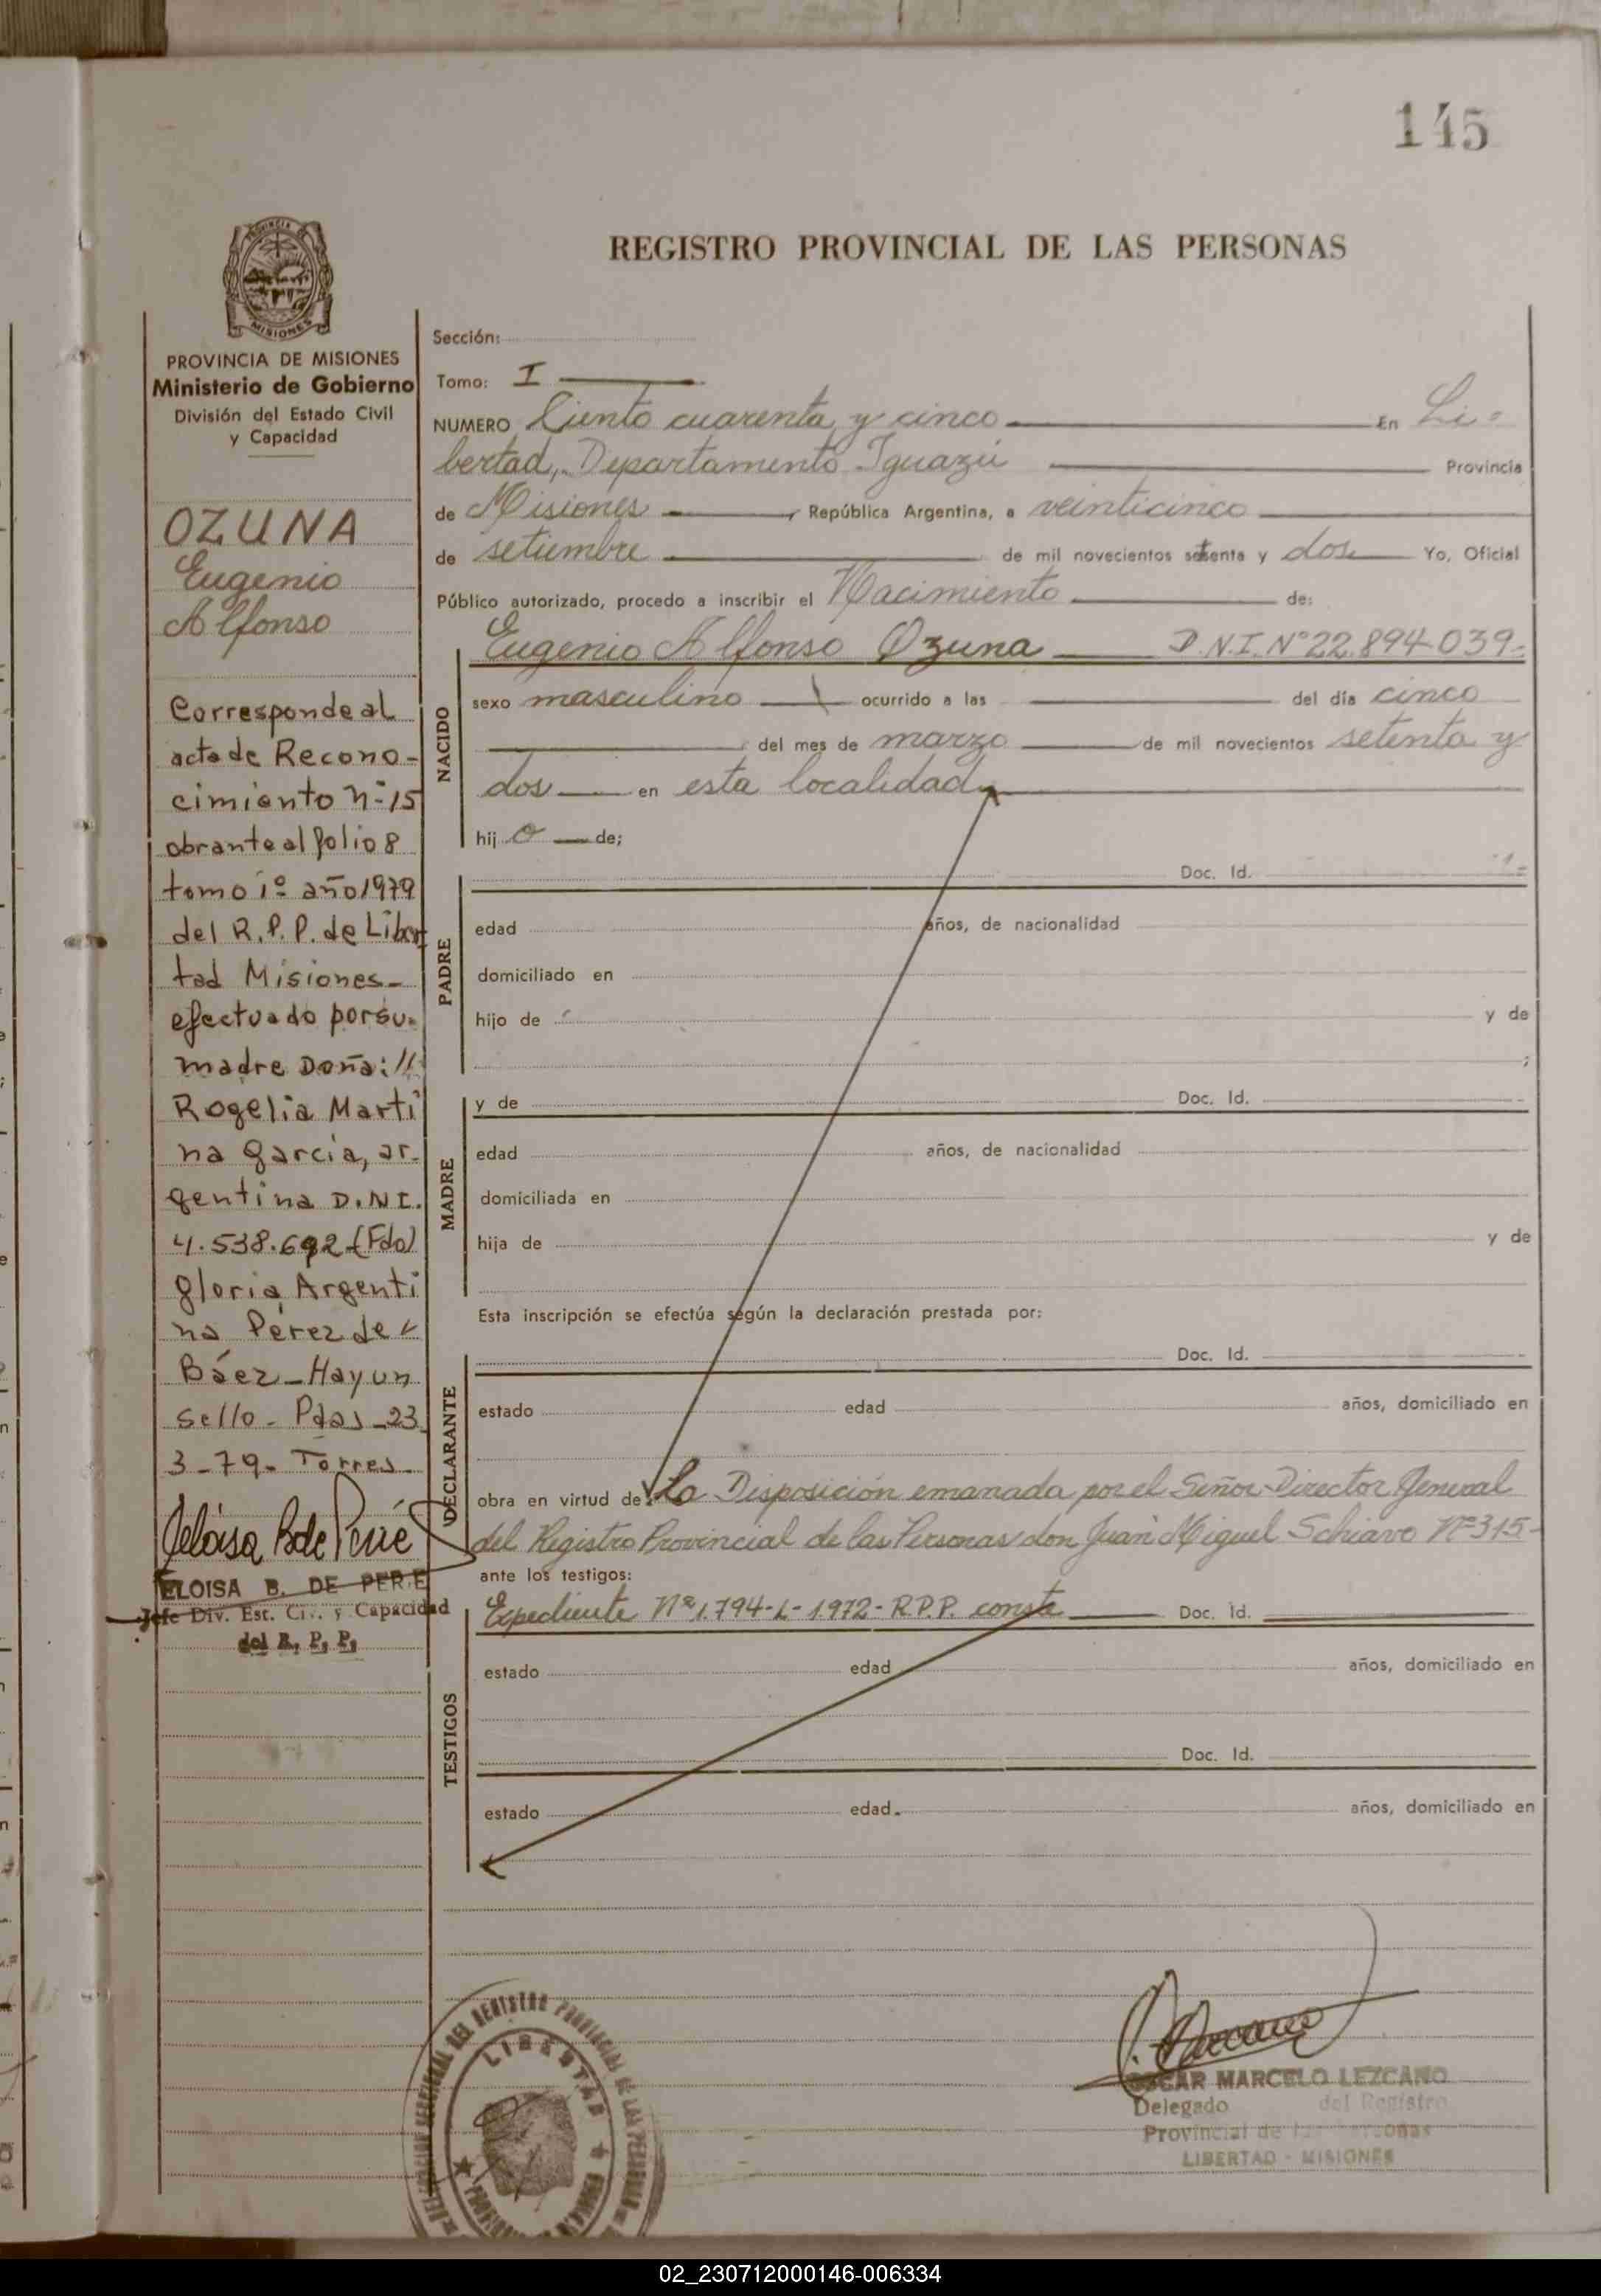 145
REGISTRO PROVINCIAL DE LAS PERSONAS
PROVINCIA DE
MISIONES
PROVINCIA DE MISIONES
Ministerio de Gobierno
División del Estado Civil
y Capacidad
OZUNA
Eugenio
Alfonso
Corresponde al
acta de Recono-
cimiento nº 15
obrante al folio 8
tomo 1º año 1979
del R.P.P. de Liber
tad Misiones-
efectuado por su-
madre Doña: //
Rogelia Marti
na García, ar-
gentina D.N.I.
4.538.692-(Fdo)
Gloria Argenti
na Pérez de
Báez-Hay un
Sello- Pdas-23
3-79- Torres-
ELOISA B. DE PERIE
Jefe Div. Est. Civ. y Capacidad
del R. P. P.
Sección:
Tomo: I
NUMERO Ciento cuarenta y cinco En Li-
bertad, Departamento Iguazú Provincia
de Misiones, República Argentina, a veinticinco
de setiembre de mil novecientos setenta y dos Yo, Oficial
Público autorizado, procedo a inscribir el Nacimiento de:
NACIDO
Eugenio Alfonso Ozuna D.N.I. Nº 22.894.039-
sexo masculino ocurrido a las del día cinco
del mes de marzo de mil novecientos setenta y
dos en esta localidad
hij o de;
PADRE
Doc. Id.
edad años, de nacionalidad
domiciliado en
hijo de y de
;
MADRE
y de Doc. Id.
edad años, de nacionalidad
domiciliada en
hija de y de
Esta inscripción se efectúa según la declaración prestada por:
DECLARANTE
Doc. Id.
estado edad años, domiciliado en
obra en virtud de: La Disposición emanada por el Señor Director General
del Registro Provincial de las Personas don Juan Miguel Schiavo Nº 315-
ante los testigos:
TESTIGOS
Expediente Nº 1.794-L-1972-R.P.P. conste Doc. Id.
estado edad años, domiciliado en
Doc. Id.
estado edad. años, domiciliado en
DEL REGISTRO PROVINCIAL DE LAS PERSONAS
LIBERTAD
OSCAR MARCELO LEZCANO
Delegado del Registro
Provincial de las Personas
LIBERTAD - MISIONES
02_230712000146-006334